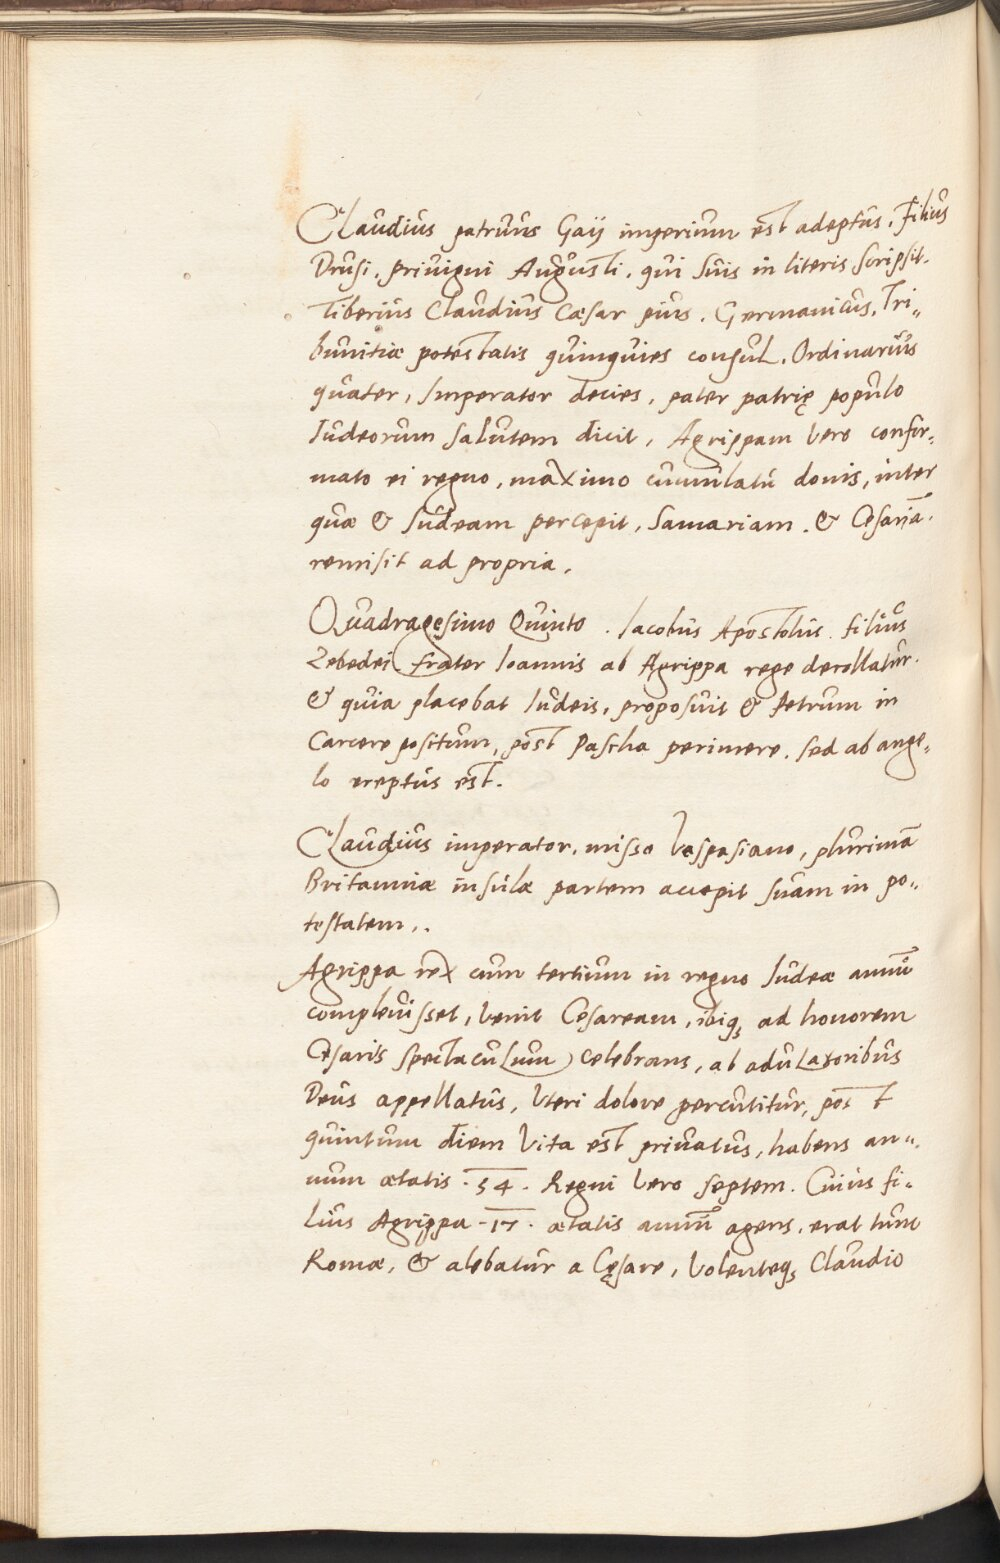 Claudius patruus Gaij imperium est adeptus. Filius
Drusi, priuigni Augusti, qui suis in literis scripsit.
Tiberius Claudius Cæsar pius. Germanicus, Tri„
bunitiæ potestatis quinquies consul. Ordinarius
quater, Imperator decies, pater patrię populo
Iudeorum salutem dicit, Agrippam vero confir„
mato ei regno, maximo cumulatū donis, inter
quæ & Iudeam percepit, Samariam. & Cesariā.
remisit ad propria.
Quadragesimo Quinto. Iacobus Apostolus. filius
Zebedei frater Ioannis ab Agrippa rege decollatur.
& quia placebat Iudeis, proposuit & Petrum in
Carcere positum, post Pascha perimere. sed ab ange„
lo ereptus est.
Claudius imperator. misso Vespasiano, plurimā
Britanniæ insulæ partem accepit suam in po„
testatem..
Agrippa rex cum tertium in regno Iudeæ annū
complevisset, venit Cesaream, ibiqꝫ ad honorem
Cesaris spectaculum celebrans, ab adulatoribus
Deus appellatus, Uteri dolore percutitur, post
quintum diem vita est privatus, habens an„
num ætatis .54. Regni vero septem. Cuius fi„
lius Agrippa .17. ætatis annū agens. erat tunc
Romæ, & alebatur a Cęsare, volenteqꝫ Claudio